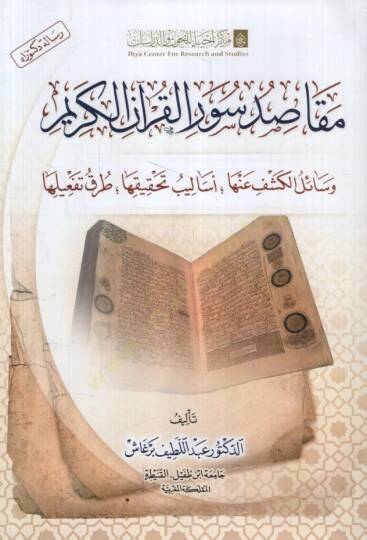 مركز إحياء للبحوث والدراسات
Ihyâ Center For Research and Studies
رسالة دكتوراه
مقاصد سور القرآن الكريم
وسائل الكشف عنها؛ أساليب تحقيقها؛ طرق تفعيلها
تأليف
الدكتور عبد اللطيف برغاش
جامعة ابن طفيل - القنيطرة
المملكة المغربية